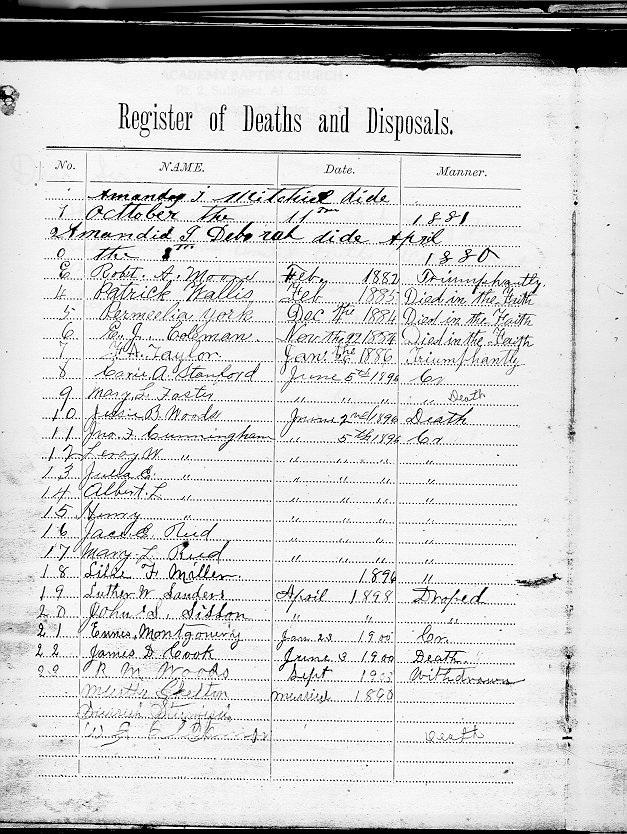 ACADEMY BAPTIST CHURCH
Register of Deaths and Disposals.
No. NAME. Date. Manner.
Amanday T Mitchel dide
1 Octtober the 11th 1881
2 Amandid J Deborah dide April
the 1880
Robt. A. Moore Feb. 1882 Triumphantly
4 Patrick Wallis Feb 1885 Died in the Faith
5 Permeelia York Dec the 1884 Died in the Faith
6 E. J. Coleman Nov the 1884 Died in the Faith
7 Taylor Jan the 1886 Triumphantly
8 Carie A Stanford June 5th 1896 Cr
9 Mary L. Foster " " " " Death
10 Jessie B. Woods June 2nd 1896 Death
11 Jno. F. Cunningham " 5th 1896 Cr
12 Leroy W. " " " " "
13 Julia E. " " " " "
14 Albert L " " " " "
15 Henry " " " " "
16 Jacob E. Reed " " " "
17 Mary L Reed " " " "
18 Lillie F. Miller 1896 "
19 Luther W Sanders April 1898 Droped
20 John S. Sisson " " "
21 Ennis Montgomery Jan 23 1900 Cr.
22 James D. Cook June 3 1900 Death
R. M. Woods Sept 1903 Withdrawn
1860
Death